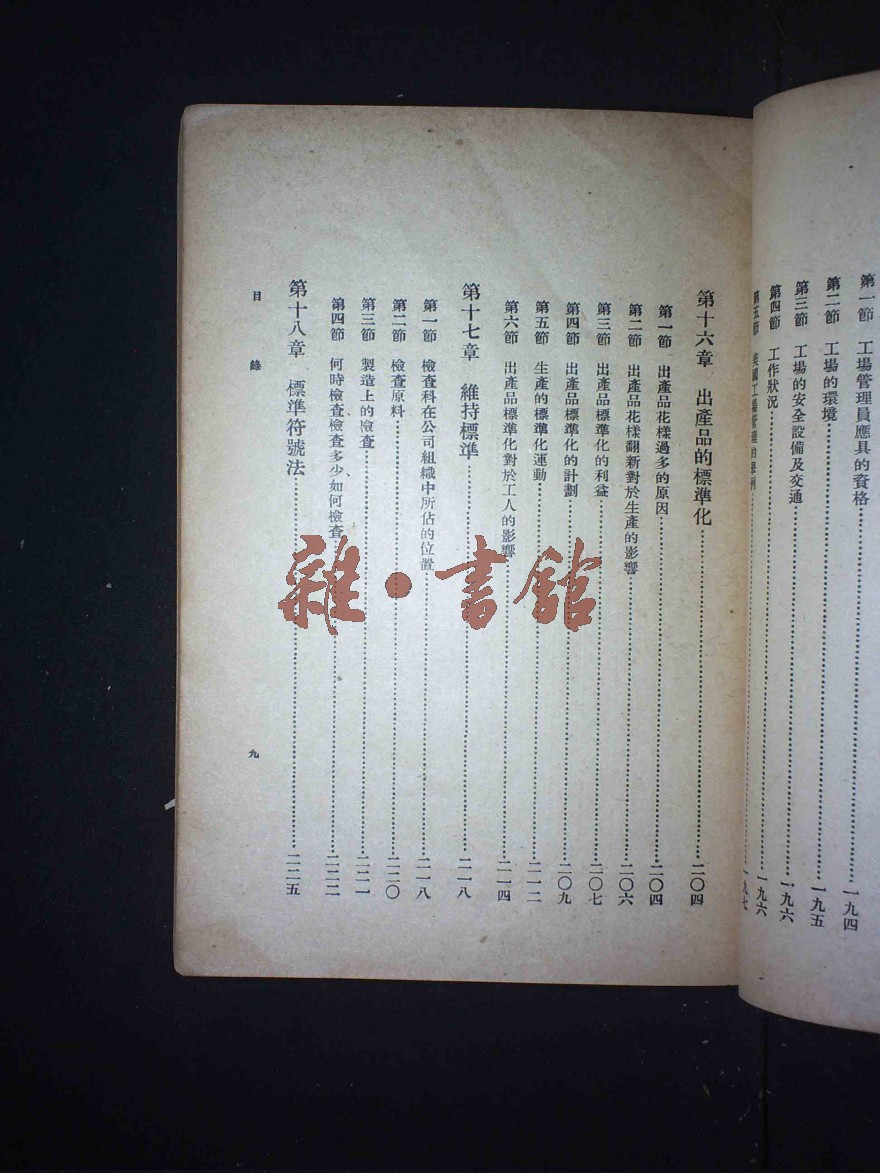 第一節　工場管理員應具的資格……一九四
第二節　工場的環境……一九五
第三節　工場的安全設備及交通……一九六
第四節　工作狀況……一九六
第五節　美國工場管理的舉例……一九七
第十六章　出產品的標準化……二〇四
第一節　出產品花樣過多的原因……二〇四
第二節　出產品花樣翻新對於生產的影響……二〇六
第三節　出產品標準化的利益……二〇七
第四節　出產品標準化的計劃……二〇九
第五節　生產的標準化運動……二一二
第六節　出產品標準化對於工人的影響……二一四
第十七章　維持標準……二一八
第一節　檢查科在公司組織中所佔的位置……二一八
第二節　檢查原料……二二〇
第三節　製造上的檢查……二二一
第四節　何時檢查、檢查多少、如何檢查……二二二
第十八章　標準符號法……二二五
目錄
九
雜·書館